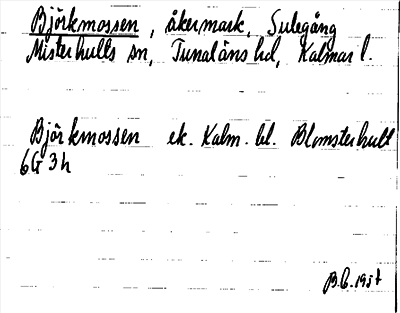 Björkmossen, åkermark, Sulegång
Misterhults sn, Tunaläns hd, Kalmar l.
Björkmossen ek. Kalm. bl. Blomsterhult
6G3h